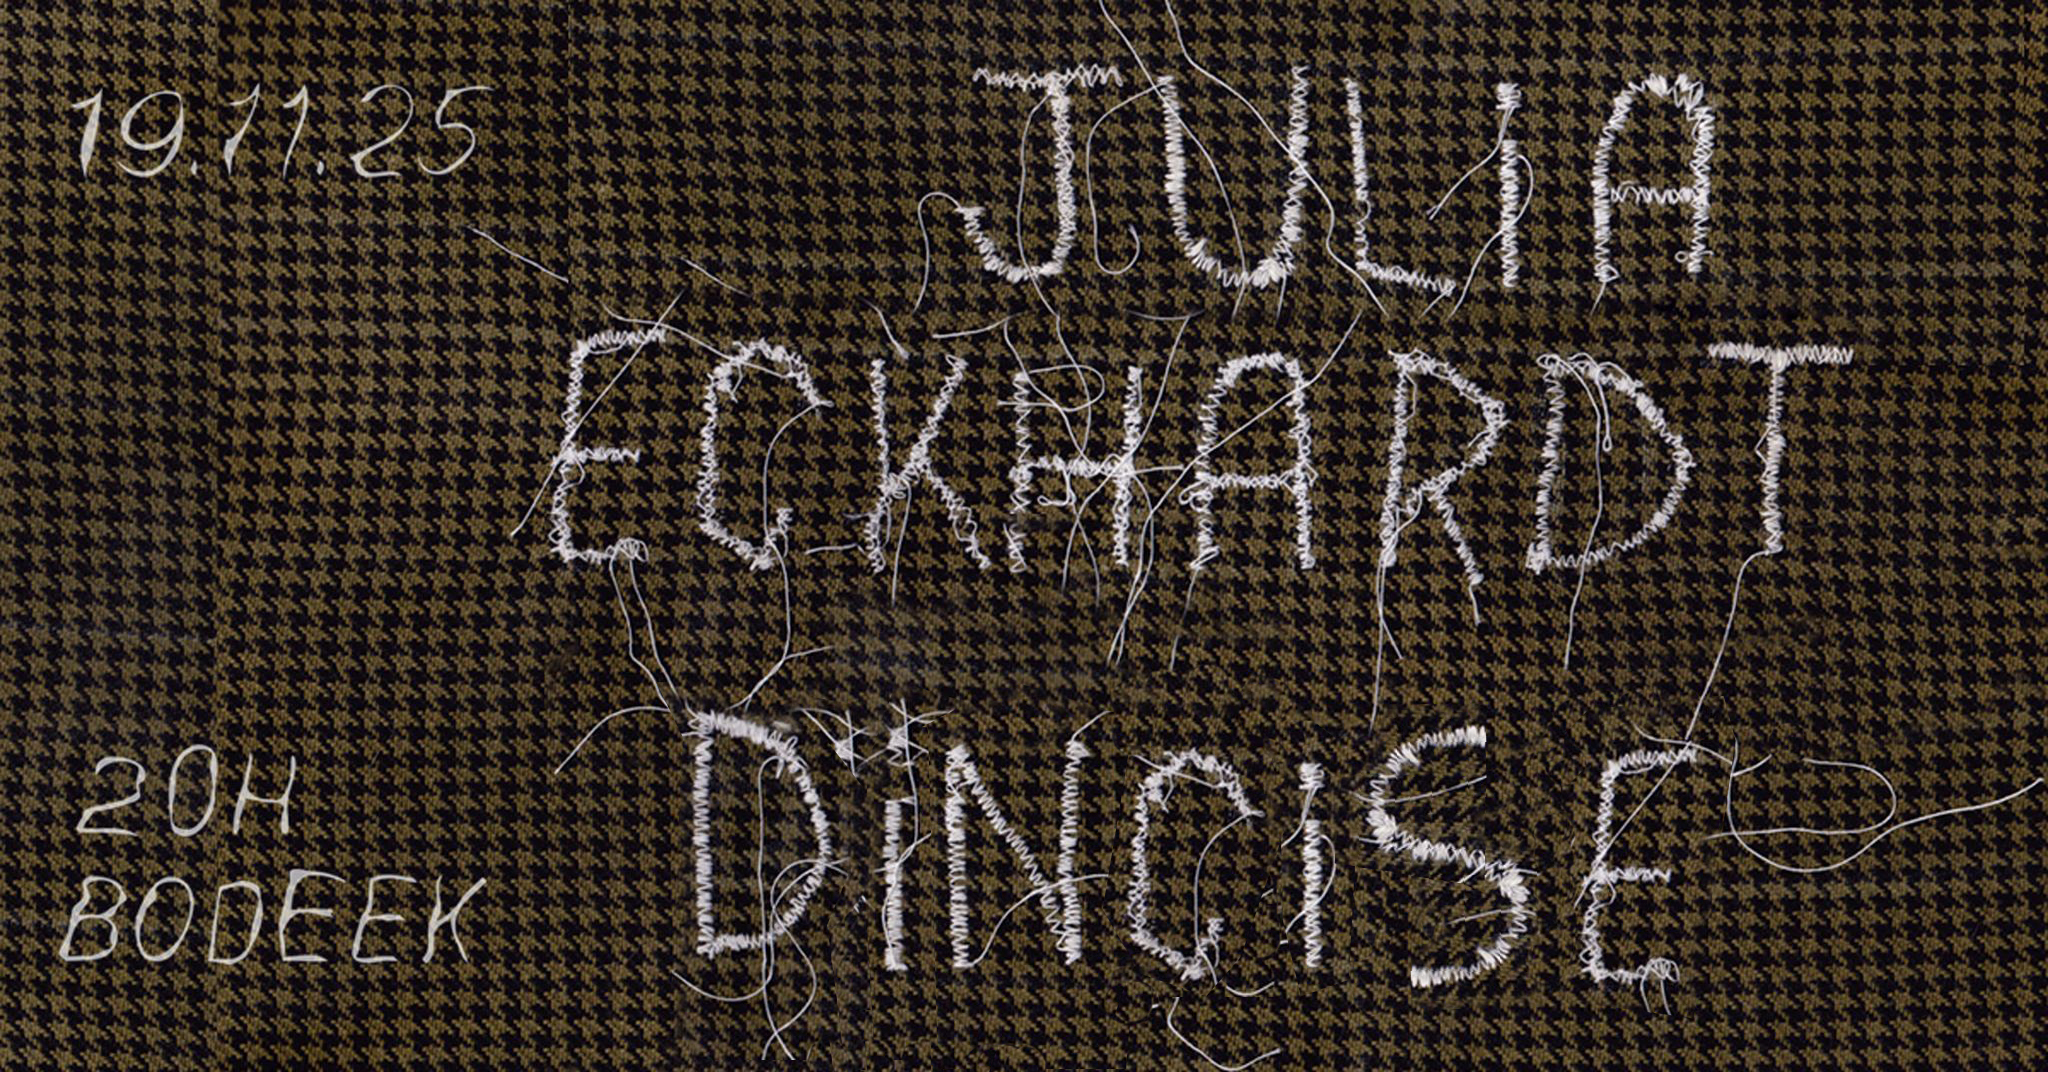 19.11.25
JULiA
ECKHARDT
DïNCiSE
20H
BODEEK